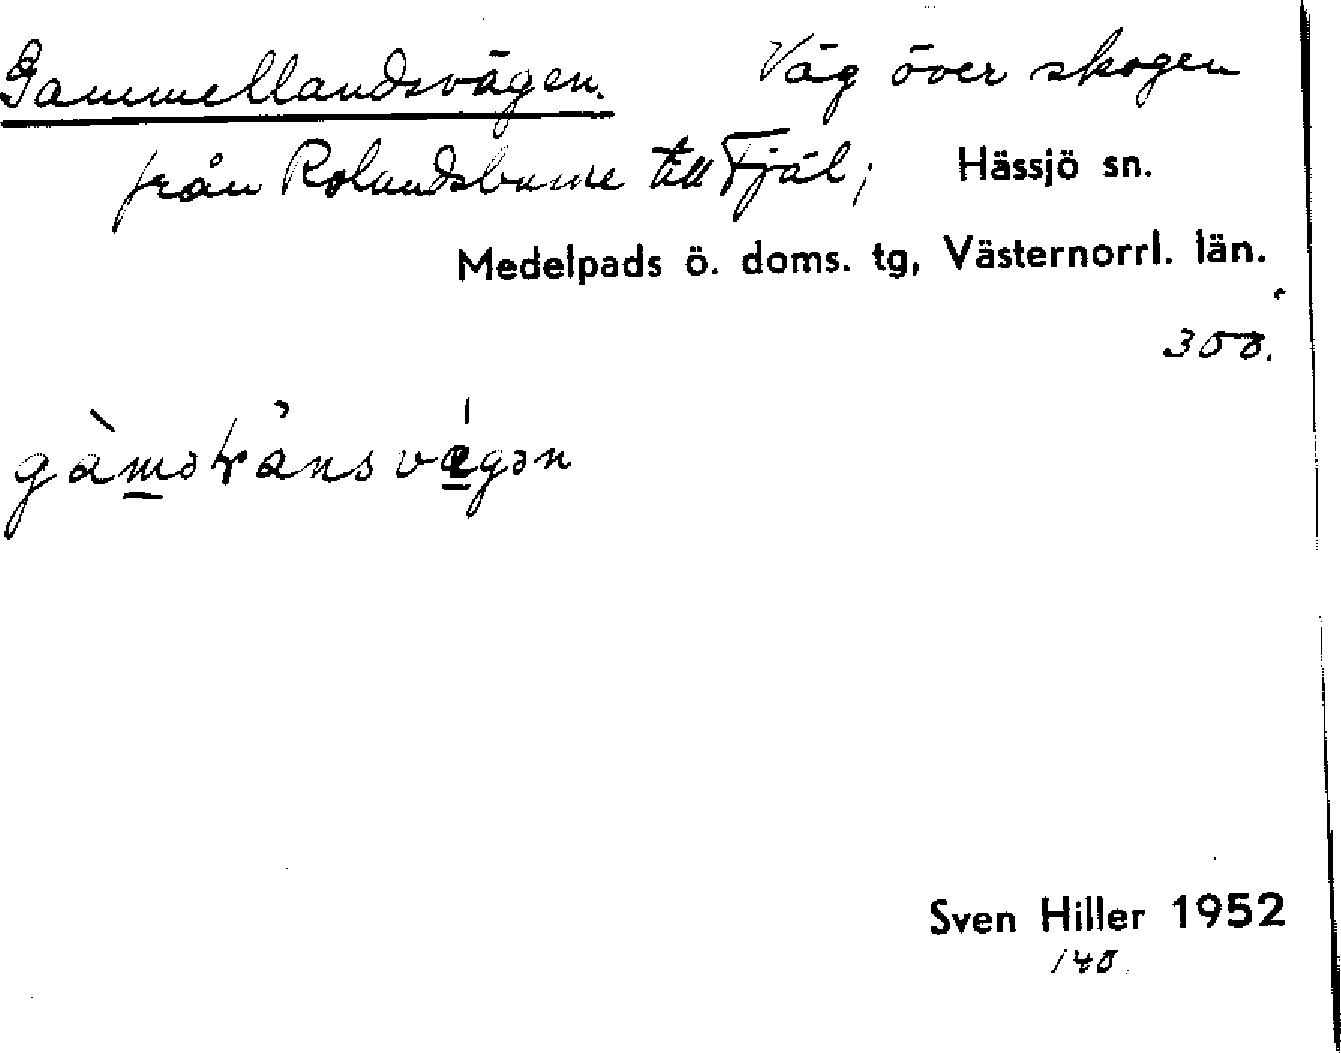 Gammellandsvägen. Väg över skogen
från Rolandsburne till Fjäl; Hässjö sn.
Medelpads ö. doms. tg, Västernorrl. län.
300.
Sven Hiller 1952
140.